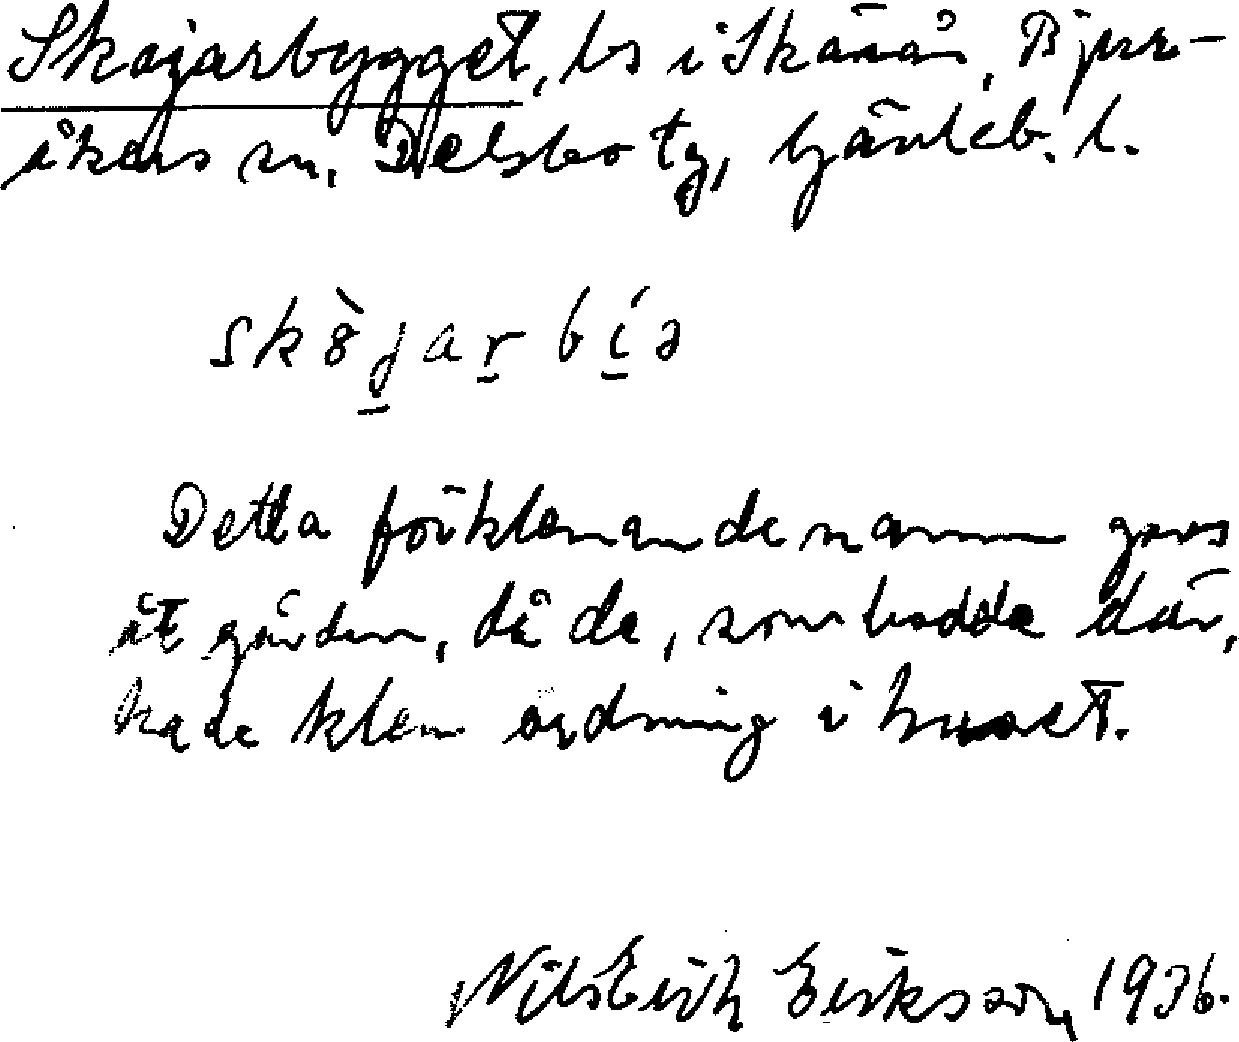 Skojarbygget, ls i Skånån, Bjur-
åkers sn, Delsbo tg, Gävleb. l.
skòjar bíə
Detta förklenande namn gavs
åt gården, då de, som bodde där,
hade klen ordning i huset.
Nils Erik Eriksson, 1936.